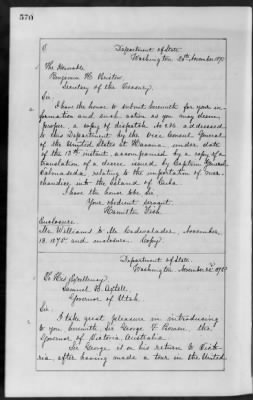 570
Department of State
Washington 20th November 1875
The Honorable
Benjamin H. Bristow
Secretary of the Treasury.
Sir:
I have the honor to submit herewith for your in-
formation and such action as you may deem
proper, a copy of dispatch No addressed
to this Department by the Vice Consul General
of the United States at Havana, under date
of the 13th instant, accompanied by a copy of a
translation of a decree issued by Captain General
Valmaseda, relating to the importation of mer-
chandise into the Island of Cuba.
I have the honor &c Sir
Your obedient servant.
Hamilton Fish
Enclosure.
Mr. Williams to Mr. Cadwalader, November
13. 1875 and enclosure. Copy.
Department of State.
Washington November 187
To His Excellency
Samuel B. Axtell
Governor of Utah.
Sir:
I take great pleasure in introducing
to you herewith, Sir George F. Bowen, the
Governor of Victoria, Australia.
Sir George is on his return to Victo-
ria, after having made a tour in the United